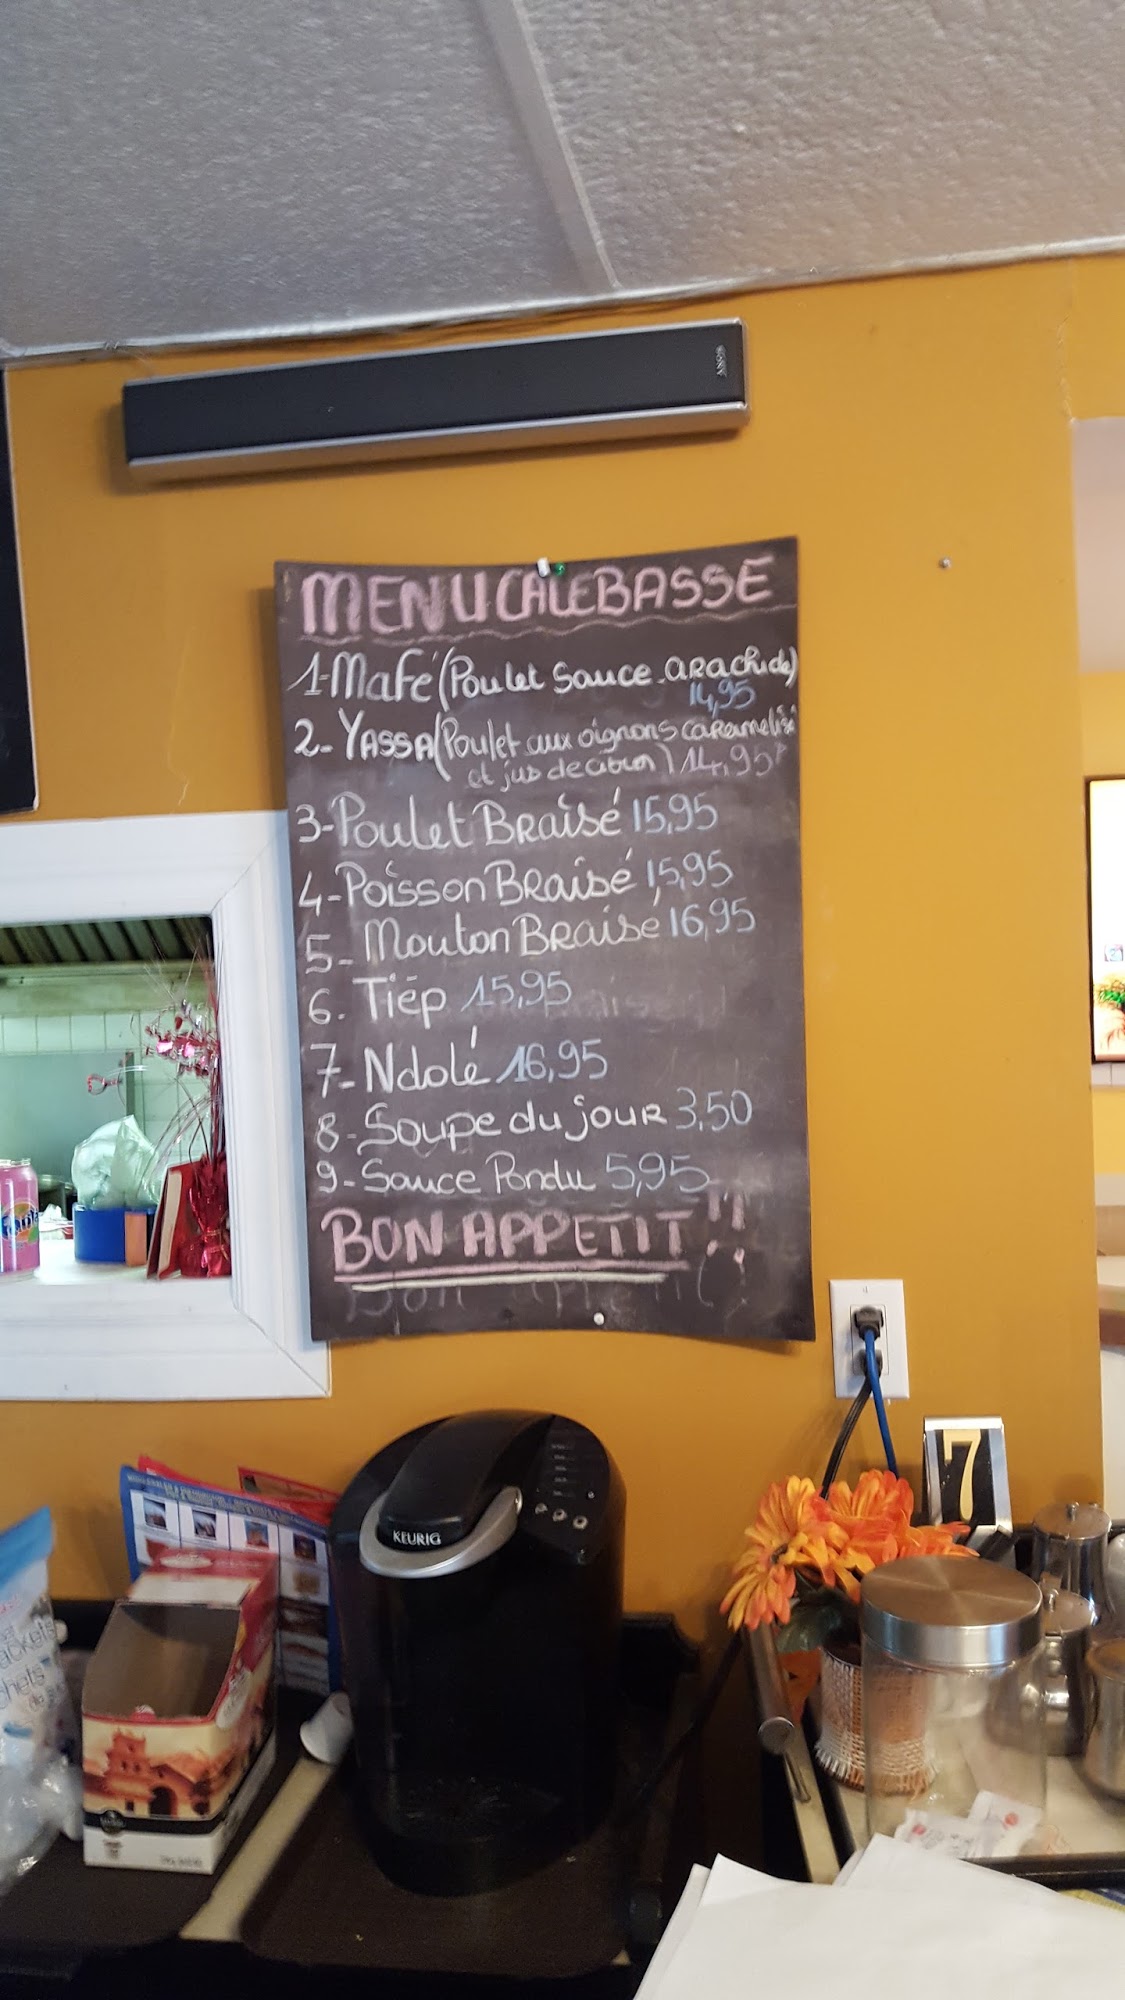 SONY
MENU CALEBASSE
1-Mafé (Poulet Sauce-arachide)
14,95
2- YASSA (Poulet aux oignons caramelisé
et jus de citron) 14,95
3-Poulet Braisé 15,95
4-Poisson Braisé 15,95
5- Mouton Braisé 16,95
6. Tiép 15,95
7- Ndolé 16,95
8-Soupe du jour 3,50
9-Sauce Pondu 5,95
BON APPETIT !!
KEURIG
7